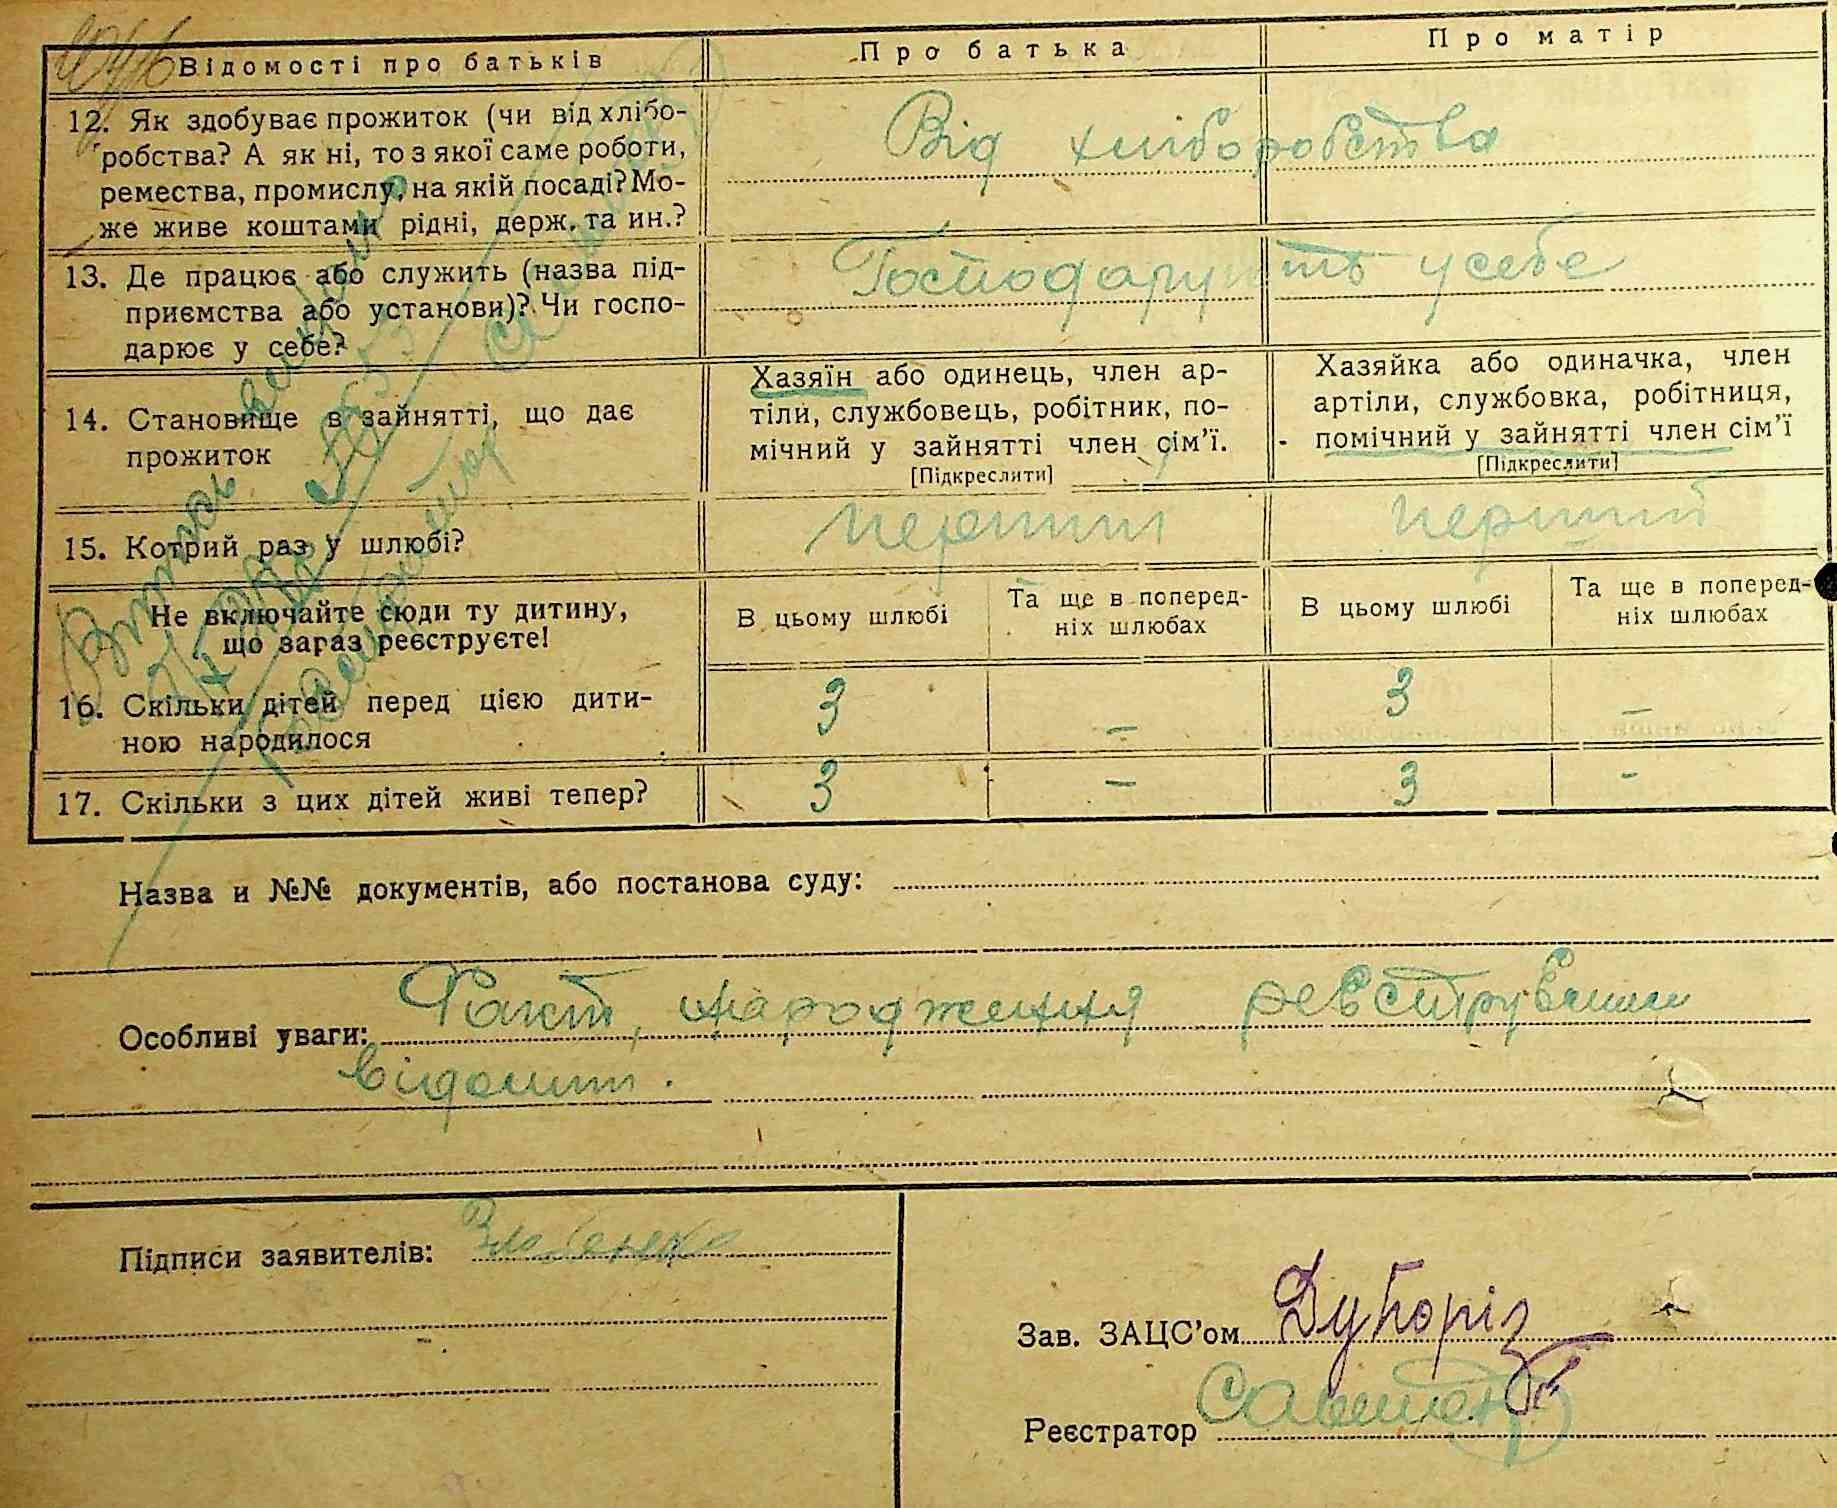 Відомості про батьків
Про батька
Про матір
12. Як здобуває прожиток (чи від хлібо-
робства? А як ні, то з якої саме роботи,
ремества, промислу, на якій посаді? Мо-
же живе коштами рідні, держ. та ин.?
Від хліборобства
13. Де працює або служить (назва під-
приємства або установи)? Чи госпо-
дарює у себе?
Господарують у себе
14. Становище в зайнятті, що дає
прожиток
Хазяїн або одинець, член ар-
тіли, службовець, робітник, по-
мічний у зайнятті член сім'ї.
[Підкреслити]
Хазяйка або одиначка, член
артіли, службовка, робітниця,
- помічний у зайнятті член сім'ї
[Підкреслити]
15. Котрий раз у шлюбі?
перший
перший
Не включайте сюди ту дитину,
що зараз реєструєте!
В цьому шлюбі
Та ще в поперед-
ніх шлюбах
В цьому шлюбі
Та ще в поперед-
ніх шлюбах
16. Скільки дітей перед цією дити-
ною народилося
3
–
3
–
17. Скільки з цих дітей живі тепер?
3
–
3
–
Назва и №№ документів, або постанова суду:
Особливі уваги: Факт народження
відомий.
Підписи заявителів:
Зав. ЗАЦС'ом Дуборіз
Реєстратор